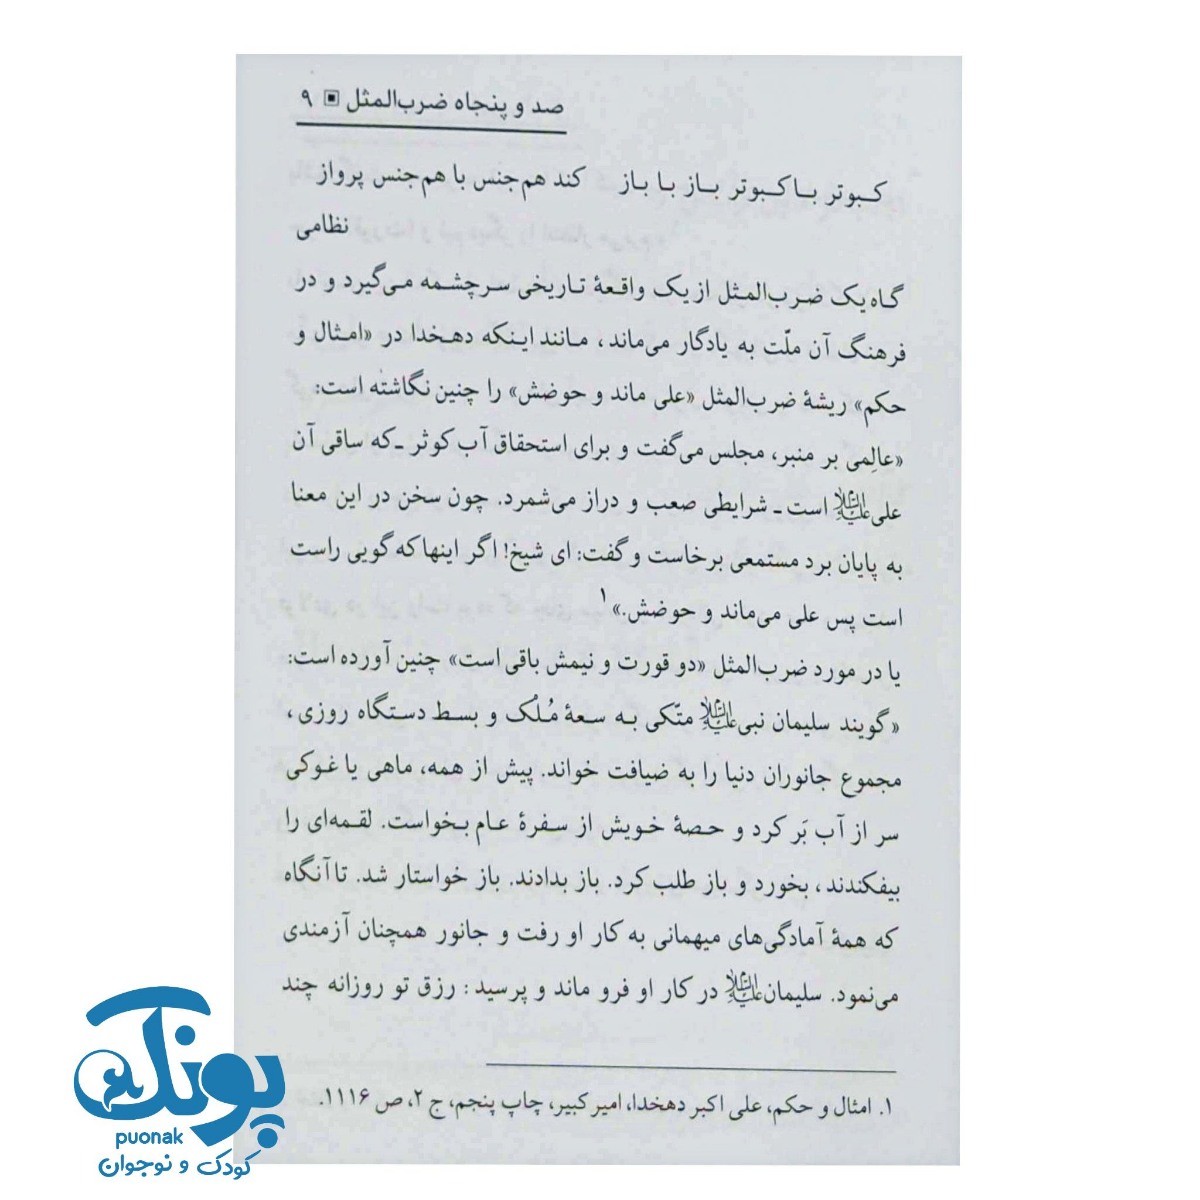 صد و پنجاه ضرب‌المثل ▣ ۹
کبوتر با کبوتر باز با باز کند هم‌جنس با هم‌جنس پرواز
نظامی
گاه یک ضرب‌المثل از یک واقعهٔ تاریخی سرچشمه می‌گیرد و در
فرهنگ آن ملّت به یادگار می‌ماند، مانند اینکه دهخدا در «امثال و
حکم» ریشهٔ ضرب‌المثل «علی ماند و حوضش» را چنین نگاشته است:
«عالِمی بر منبر، مجلس می‌گفت و برای استحقاق آب کوثر ـ که ساقی آن
علی علیه‌السلام است ـ شرایطی صعب و دراز می‌شمرد. چون سخن در این معنا
به پایان برد مستمعی برخاست و گفت: ای شیخ! اگر اینها که گویی راست
است پس علی می‌ماند و حوضش.»۱
یا در مورد ضرب‌المثل «دو قورت و نیمش باقی است» چنین آورده است:
«گویند سلیمان نبی علیه‌السلام متّکی به سعهٔ مُلْک و بسط دستگاه روزی،
مجموع جانوران دنیا را به ضیافت خواند. پیش از همه، ماهی یا غوکی
سر از آب بَر کرد و حصهٔ خویش از سفرهٔ عام بخواست. لقمه‌ای را
بیفکندند، بخورد و باز طلب کرد. باز بدادند. باز خواستار شد. تا آنگاه
که همهٔ آمادگی‌های میهمانی به کار او رفت و جانور همچنان آزمندی
می‌نمود. سلیمان علیه‌السلام در کار او فرو ماند و پرسید: رزق تو روزانه چند
۱. امثال و حکم، علی اکبر دهخدا، امیر کبیر، چاپ پنجم، ج ۲، ص ۱۱۱۶.
پونک
puonak
کودک و نوجوان